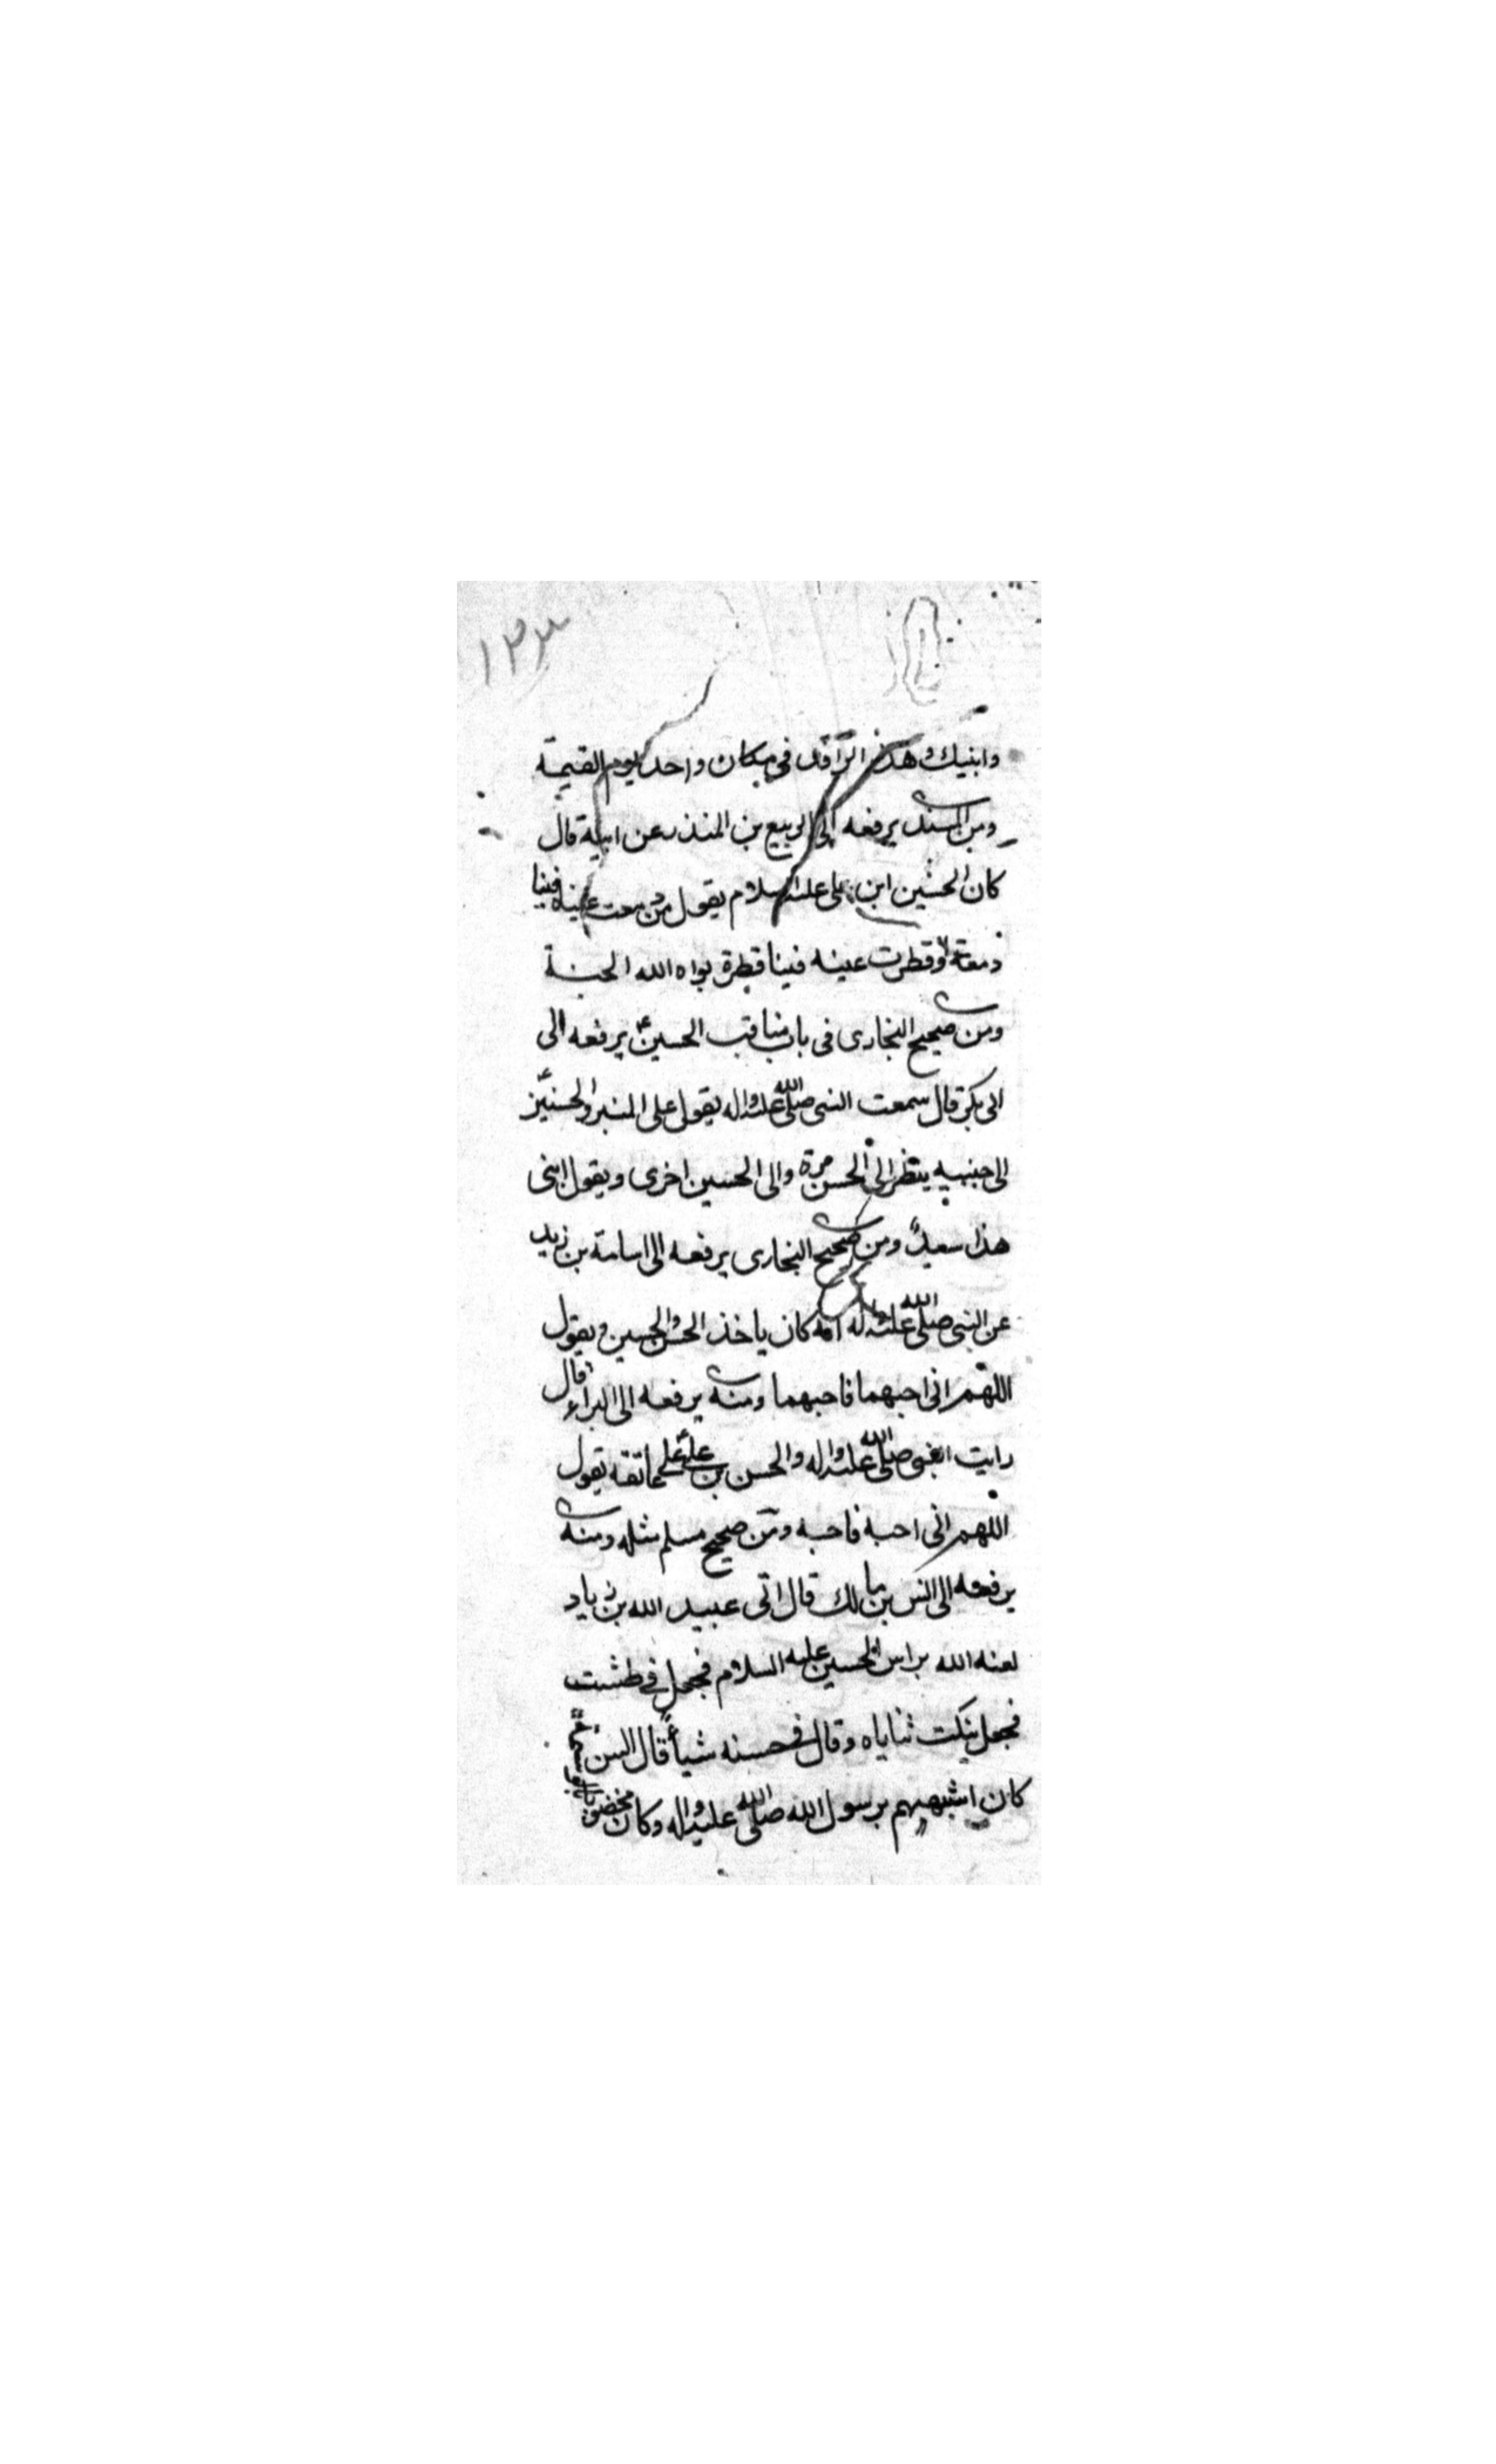 ١٢٤
وابنيك وهذا الراقد في مكان واحد يوم القيمة
ومن المسند يرفعه الى الربيع بن المنذر عن ابيه قال
كان الحسين ابن على عليه السلام يقول من دمعت عيناه فينا
دمعة او قطرت عينه فينا قطرة بواه الله الجنة
ومن صحيح البخارى فى باب مناقب الحسين ع يرفعه الى
ابى بكرة قال سمعت النبى صلى الله عليه واله يقول على المنبر والحسنين
الى جنبيه ينظر الى الحسن مرة والى الحسين اخرى ويقول ابنى
هذا سعيد ومن صحيح البخارى يرفعه الى اسامة بن زيد
عن النبى صلى الله عليه واله انه كان ياخذ الحسن والحسين ويقول
اللهم انى احبهما فاحبهما ومنه يرفعه الى البراء قال
رايت النبى صلى الله عليه واله والحسن بن على على عاتقه يقول
اللهم انى احبه فاحبه ومن صحيح مسلم مثله ومنه
يرفعه الى انس بن مالك قال اتى عبيد الله بن زياد
لعنه الله براس الحسين عليه السلام فجعل فى طشت
فجعل ينكت ثناياه وقال فى حسنه شيأ قال انس
كان اشبههم برسول الله صلى الله عليه واله وكان مخضوبا